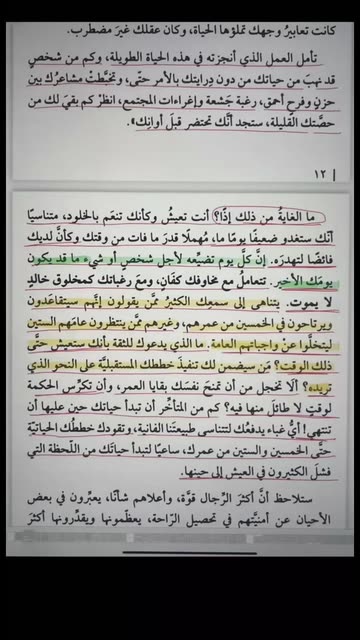 كانت تعابيرُ وجهك تملؤها الحياة، وكان عقلك غيرَ مضطرب.
تأمل العمل الذي أنجزته في هذه الحياة الطويلة، وكم من شخصٍ
قد نهبَ من حياتك من دون درايتك بالأمر حتّى، وتخبّطتْ مشاعرُك بين
حزنٍ وفرح أحمق، رغبة جَشعة وإغراءات المجتمع، انظرْ كم بقيَ لك من
حصّتك القليلة، ستجد أنَّك تحتضر قبلَ أوانِك».
١٢
ما الغايةُ من ذلك إذًا؟ أنت تعيشُ وكأنك تنعَم بالخلود، متناسيًا
أنّك ستغدو ضعيفًا يومًا ما، مُهملًا قدرَ ما فات من وقتك وكأنَّ لديك
فائضًا لتهدرَه. إنَّ كلَّ يوم تضيّعه لأجل شخصٍ أو شيءٍ ما قد يكون
يومَك الأخير. تتعامل مع مخاوفك كفَانٍ، ومعَ رغباتك كمخلوق خالدٍ
لا يموت. يتناهى إلى سمعِك الكثيرُ ممَّن يقولون إنَّهم سيتقاعدون
ويرتاحون في الخمسين من عمرهم، وغيرهم ممَّن ينتظرون عامَهم الستين
ليتخلَّوا عنْ واجباتِهم العامة. ما الذي يدعوك للثقة بأنك ستعيش حتَّى
ذلك الوقت؟ مَن سيضمن لك تنفيذَ خططك المستقبليَّة على النحو الذي
تريده؟ ألَا تخجل من أن تمنحَ نفسَك بقايا العمر، وأن تكرِّس الحكمة
لوقتٍ لا طائلَ منها فيه؟ كم من المتأخّر أن تبدأ حياتك حين عليها أن
تنتهي! أيُّ غباء يدفعُك لتتناسى طبيعتَنا الفانية، وتقودك خططك الحياتيّة
حتَّى الخمسين والستين من عمرك، ساعيًا لتبدأ حياتَك من اللحظة التي
فشلَ الكثيرون في العيش إلى حينها.
ستلاحظ أنَّ أكثرَ الرِّجال قوَّة، وأعلاهم شأنًا، يعبِّرون في بعض
الأحيان عن أمنيَّتهم في تحصيل الرّاحة، يعظّمونها ويقدِّرونها أكثرَ